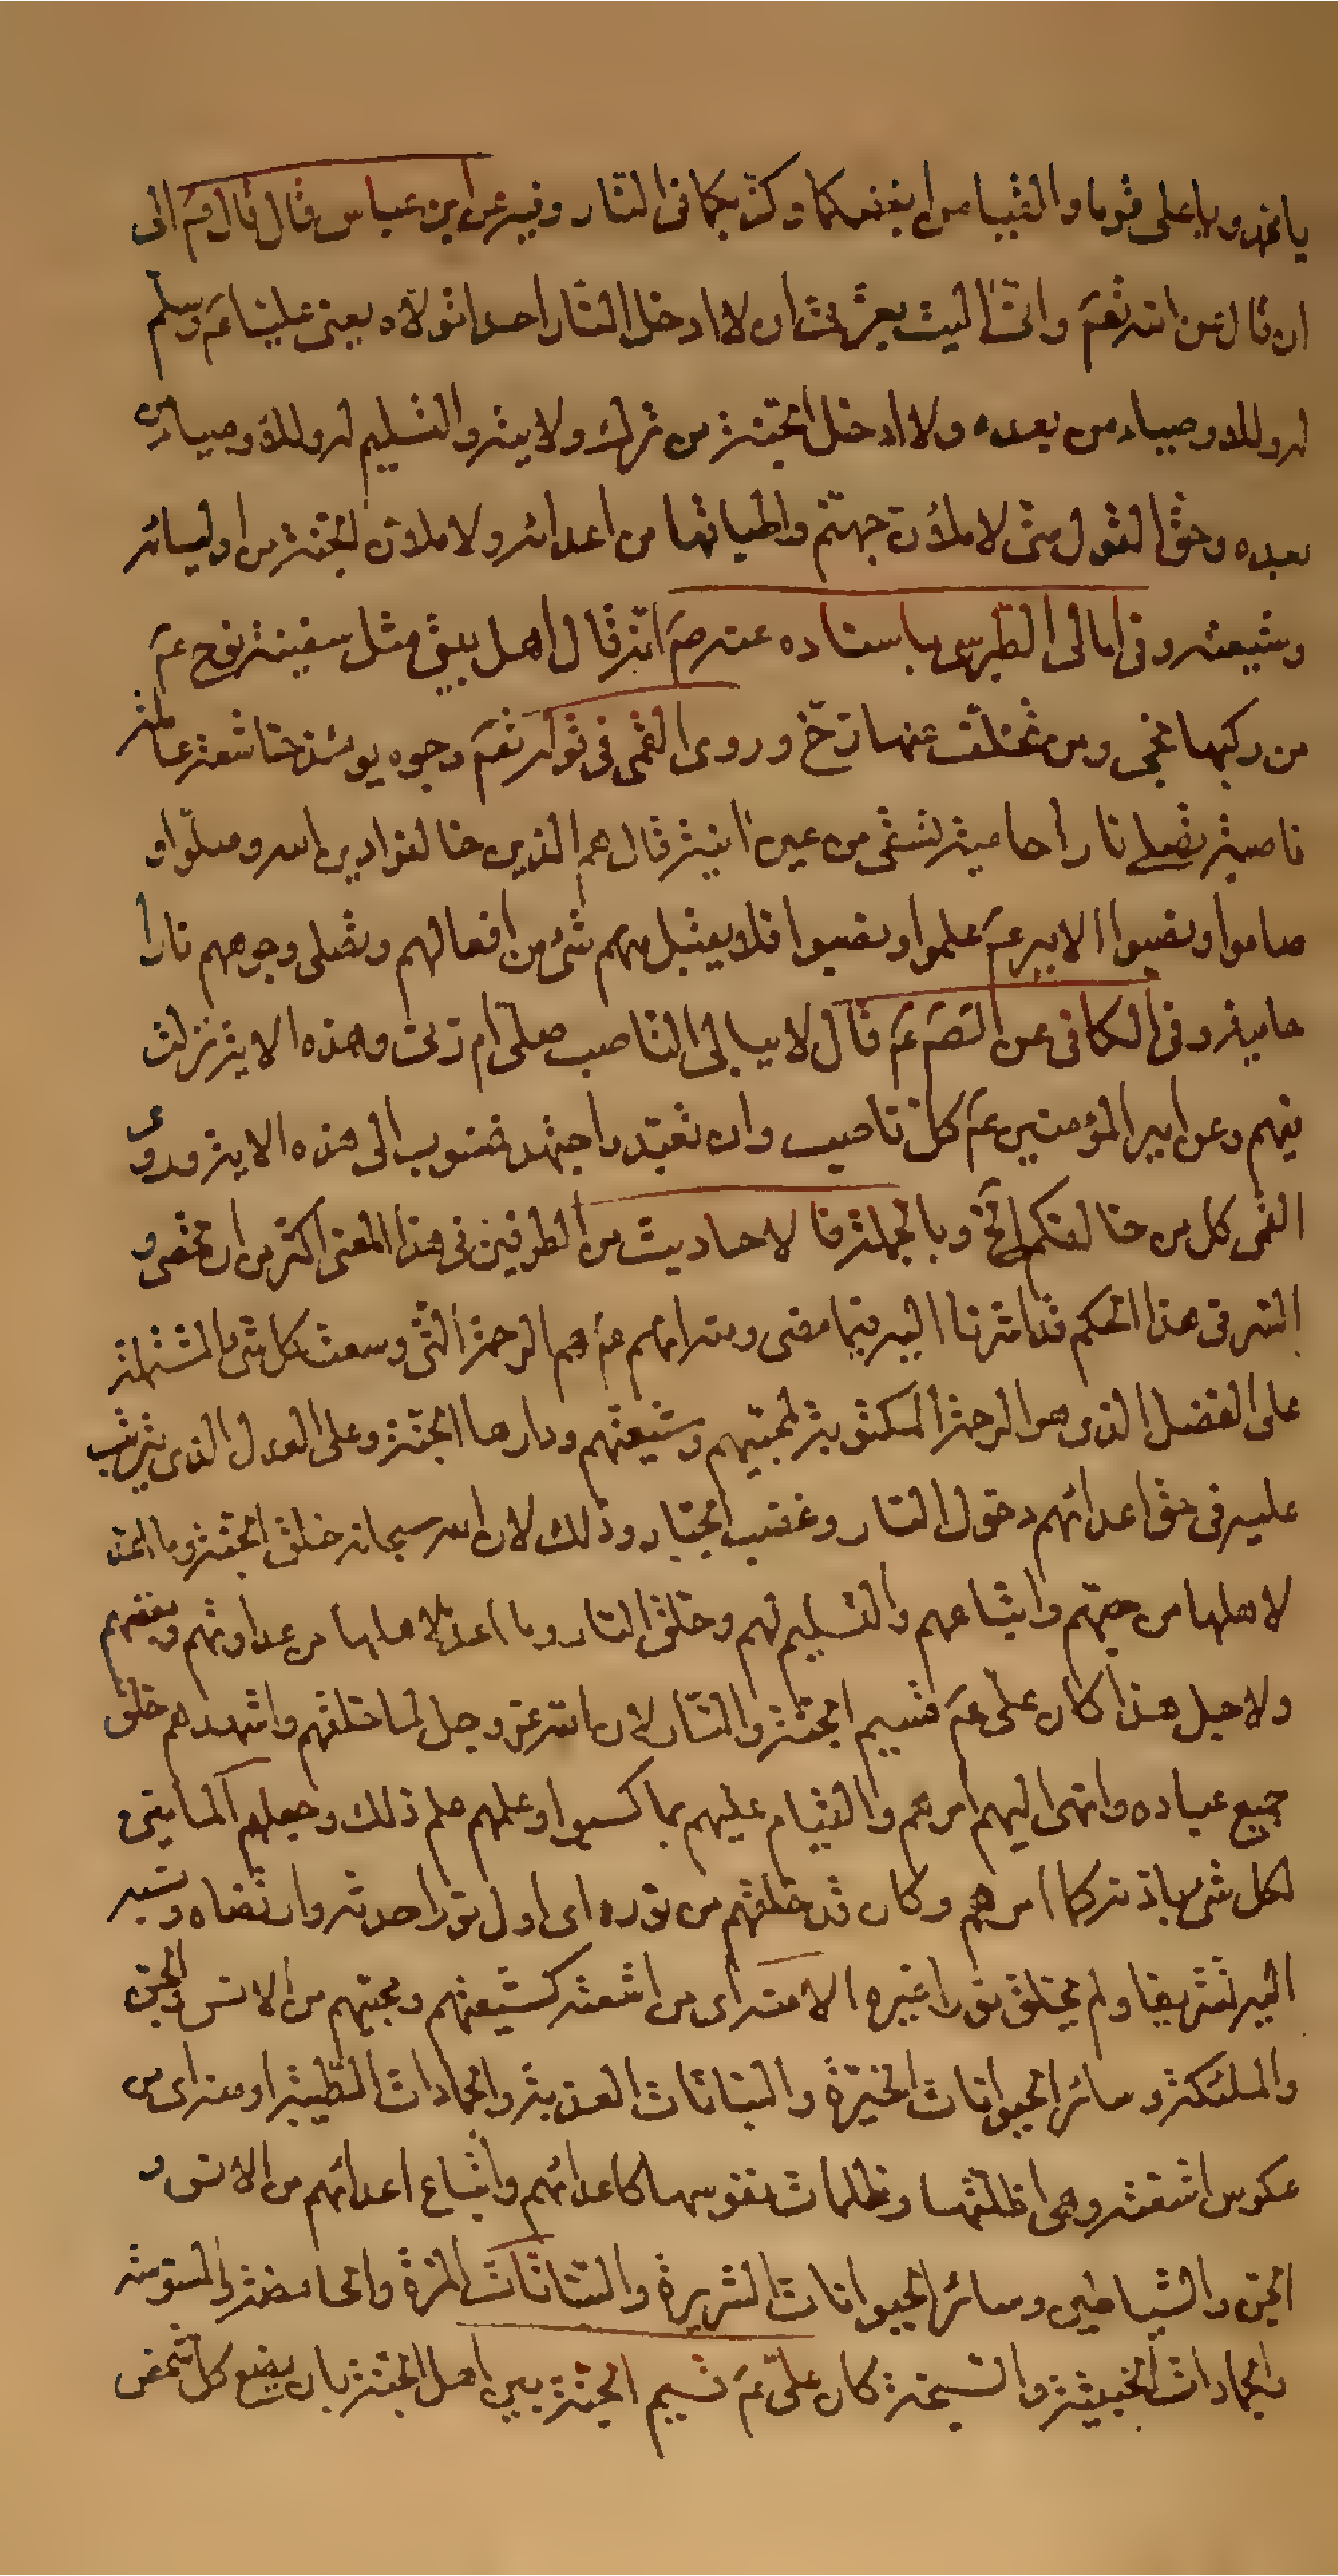 يا محمد ويا على قوما والقيا من ابغضكما وكذبكما فى النار وفيه عن ابن عباس قال قال ص الى
ان قال عن الله تعم وانى اليت بعزتى ان لا ادخل النار احدا تولاه يعنى عليا عم وسلم
له وللاوصياء من بعده ولا ادخل الجنة من ترك ولايته والتسليم له وللاوصياء من
بعده وحق القول منى لاملؤن جهنم واطباقها من اعدائه ولاملؤن الجنة من اوليائه
وشيعته وفى امالى الطبرسى باسناده عنه ص انه قال اهل بيتى مثل سفينة نوح عم
من ركبها نجى ومن تخلف عنها زخ وروى القمى فى قوله تعم وجوه يومئذ خاشعة عاملة
ناصبة تصلى نارا حامية تسقى من عين انية قال هم الذين خالفوا دين الله وصلوا و
صاموا ونصبوا لامير عم علموا ونصبوا فلا يقبل منهم شئ من افعالهم وتصلى وجوههم نارا
حامية وفى الكافى عن الصم عم قال لا يبالى الناصب صلى ام زنى وهذه الاية نزلت
فيهم وعن امير المؤمنين عم كل ناصب وان تعبد واجتهد فمنسوب الى هذه الاية وروى
القمى كل من خالفكم الخ وبالجملة فالاحاديث من الطرفين فى هذا المعنى اكثر من ان تحصى و
السر فى هذا الحكم قد اشرنا اليه فيما مضى ومنه انهم عم هم الرحمة التى وسعت كل شئ المشتملة
على الفضل الذى هو الرحمة المكتوبة لمحبيهم وشيعتهم ودارها الجنة وعلى العدل الذى يترتب
عليه فى حق اعدائهم دخول النار وغضب الجبار وذلك لان الله سبحانه خلق الجنة وما اعد
لاهلها من حبهم واتباعهم والتسليم لهم وخلق النار وما اعد لاهلها من عداوتهم وبغضهم
ولاجل هذا كان على عم قسيم الجنة والنار لان الله عز وجل لما خلقهم واشهدهم خلق
جميع عباده وانهى اليهم امرهم والقيام عليهم بما كسبوا وعلمهم علم ذلك وجعلهم
لكل شئ باذنه كما امرهم وكان قد خلقهم من نوره اى اول نور احدثه وارتضاه ونسبه
اليه تشريفا ولم يخلق نورا غيره الا منه اى من اشعته كشيعتهم ومحبيهم من الانس والجن
والملئكة وسائر الحيوانات الخيرة والنباتات العذبة والجمادات الطيبة او منه اى من
عكوس اشعته وهى اظلتها وظلمات نفوسها كاعدائهم واتباع اعدائهم من الانس و
الجن والشياطين وسائر الحيوانات الشريرة والنباتات المرة والحامضة
والجمادات الخبيثة والسبخة كان على عم قسيم الجنة بين اهل الجنة بان يضع كل شخص